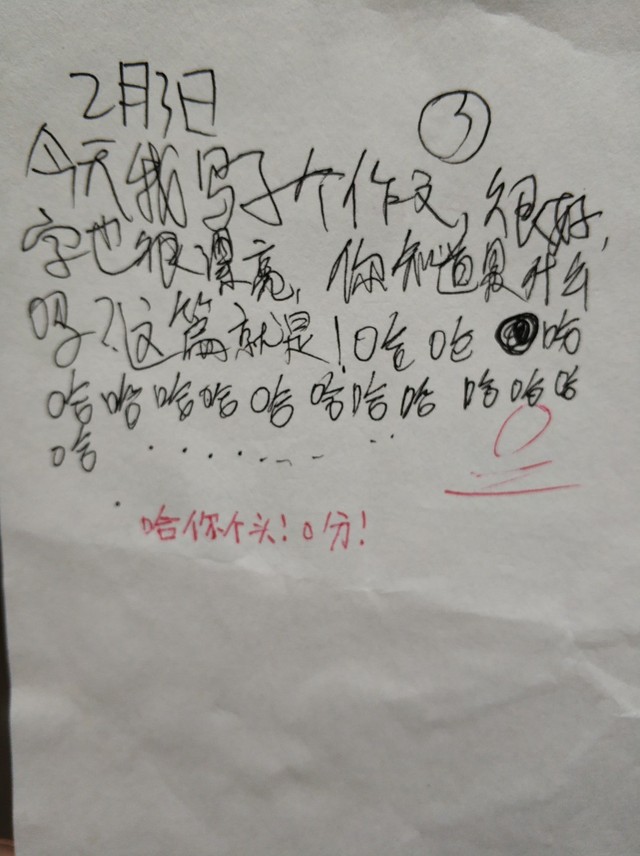 2月3日
③
今天我写了个作文,很好,
字也很漂亮,你知道是什么
吗?这篇就是!哈哈 哈
哈哈哈哈哈哈哈哈哈哈哈
哈.........
0
哈你个头!0分!